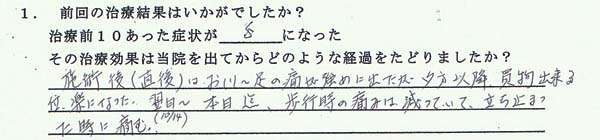 1. 前回の治療結果はいかがでしたか？
治療前１０あった症状が 8 になった
その治療効果は当院を出てからどのような経過をたどりましたか？
施術後（直後）は、お尻～足の痛みが強めに出たが夕方以降買物出来る
位、楽になった。翌日～本日迄、歩行時の痛みは減っていて、立ち止まっ
た時に痛む。(10/14)